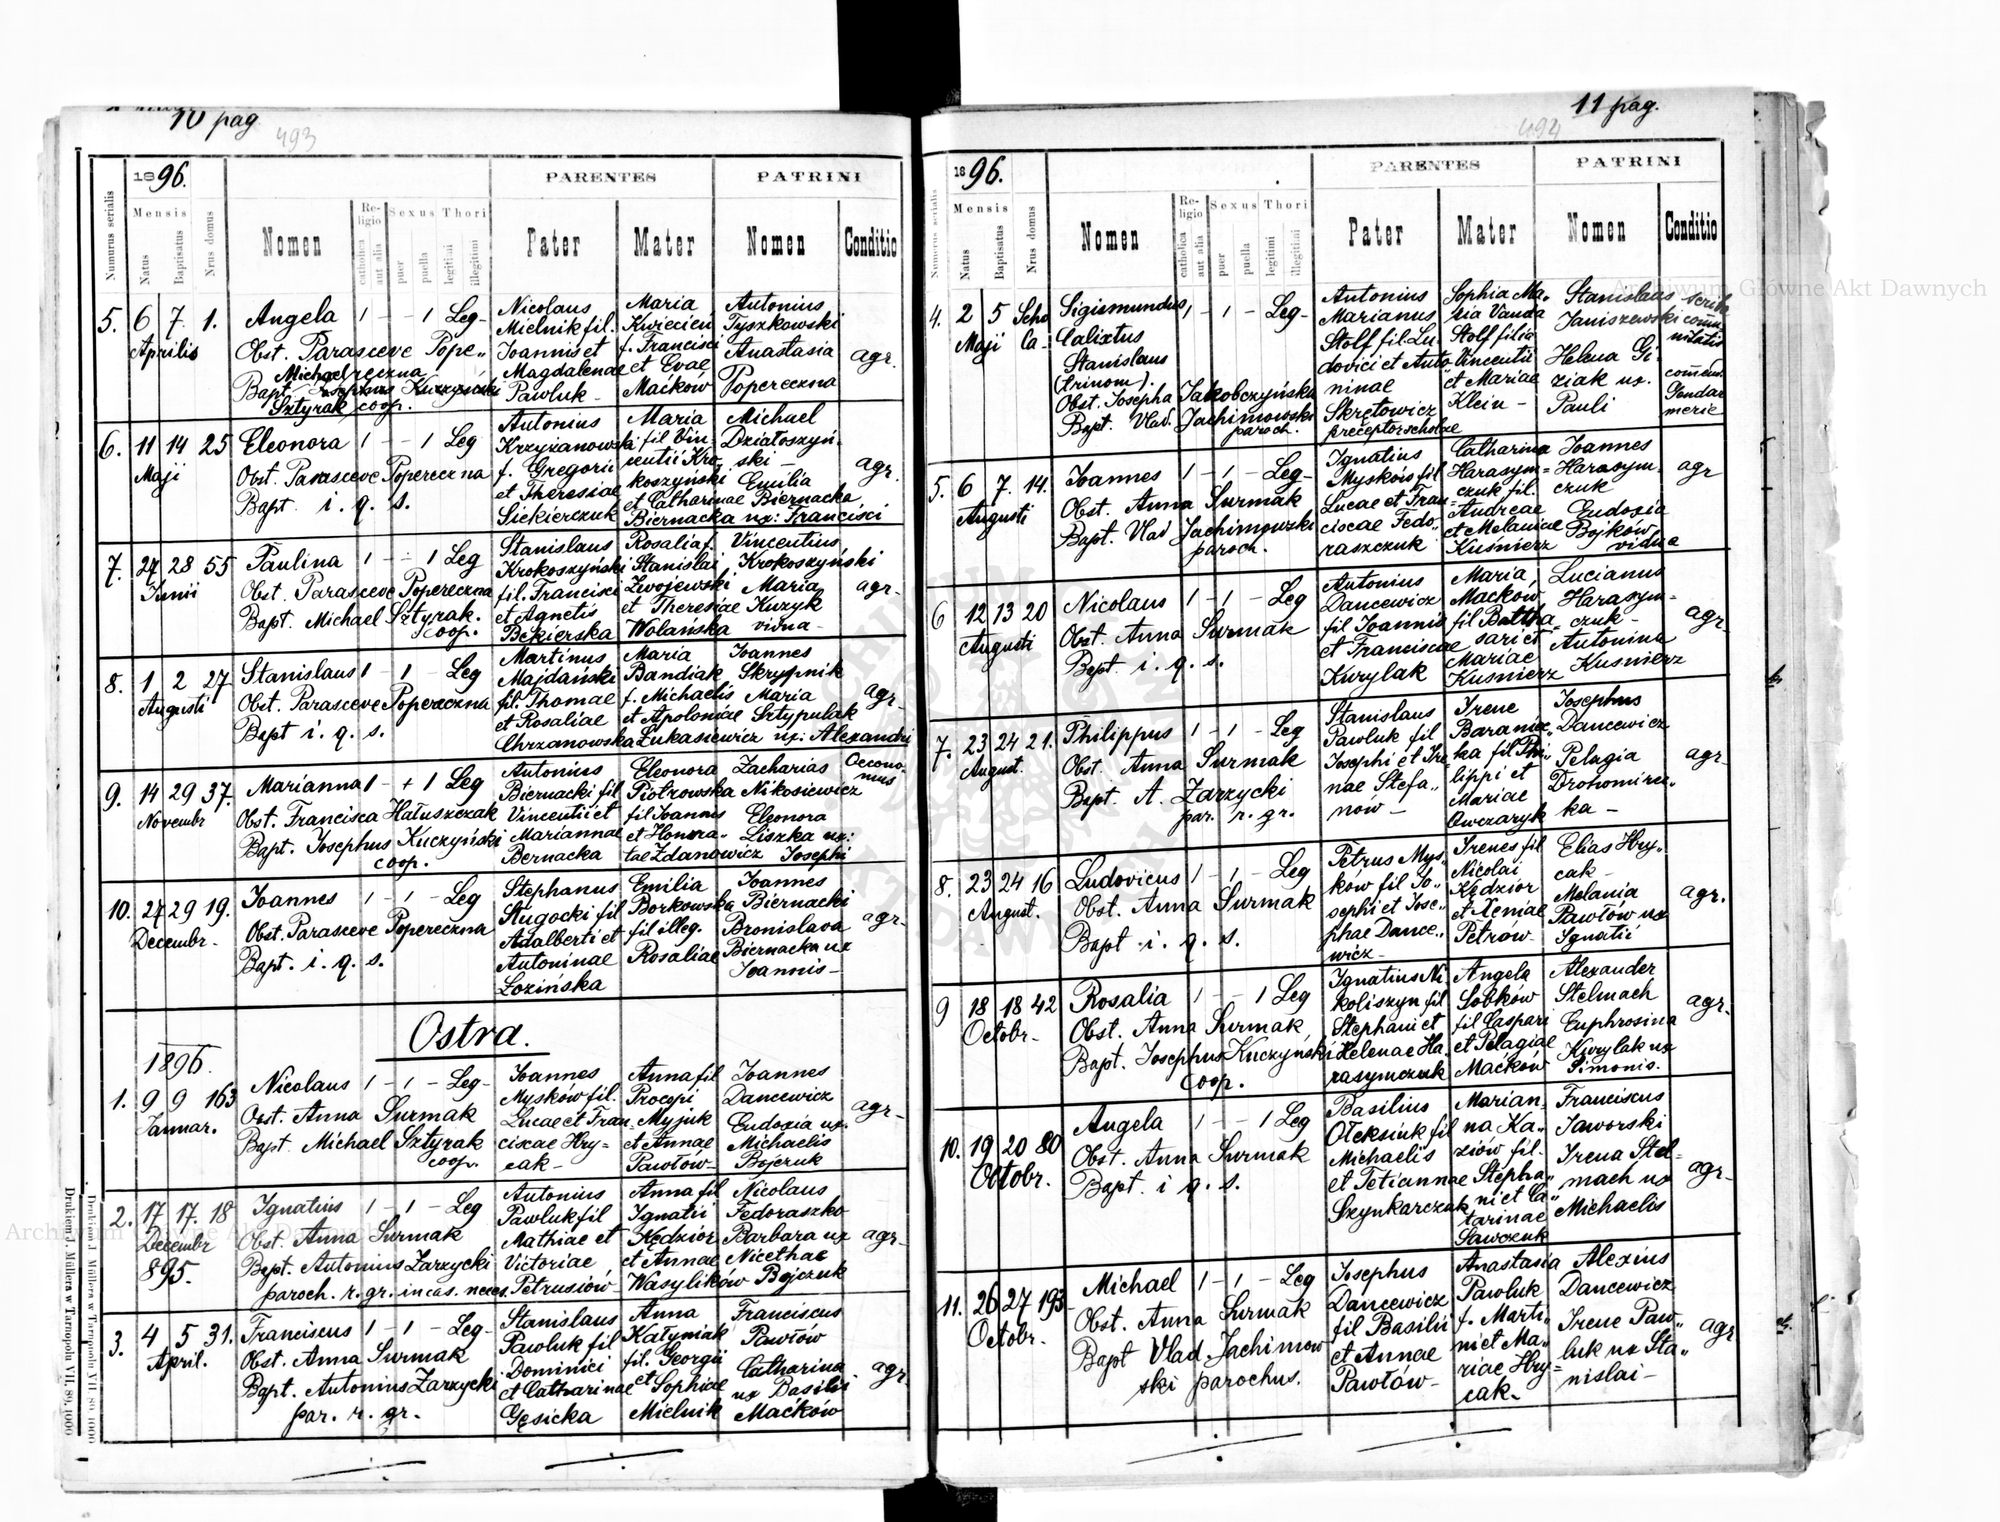 10 pag
493
1896.
PARENTES
PATRINI
Numerus serialis
Mensis
Natus
Baptisatus
Nrus domus
Nomen
Religio
catholica
aut alia
Sexus
puer
puella
Thori
legitimi
illegitimi
Pater
Mater
Nomen
Conditio
5. 6 7. 1.
Aprilis
Angela 1 - - 1 Leg-
Obst. Parasceve Pope„
reczna
Michael
Sztyrak coop.
Nicolaus
Mielnik fil.
Joannis et
Magdalenae
Pawluk -
Maria
Kwiecień
f. Francisci
et Evae
Maćków
Antonius
Tyszkowski
Anastasia
Popereczna
agr.
6. 11 14 25
Maji
Eleonora 1 - - 1 Leg
Obst. Parasceve Popereczna
Bapt. i. q. s.
Antonius
Krzyżanowski
f. Gregorii
et Theresiae
Siekierczuk
Maria
fil Vin-
centii Kro„
koszyński
et Catharinae
Biernacka
Michael
Działoszyń-
ski -
Emilia
Biernacka
ux: Francisci
agr.
7. 27 28 55
Junii
Paulina 1 - - 1 Leg
Obst. Parasceve Popereczna
Bapt. Michael Sztyrak.
coop.
Stanislaus
Krokoszyński
fil. Francisci
et Agnetis
Bekierska
Rosalia f.
Stanislai
Zwojewski
et Theresiae
Wolańska
Vincentius
Krokoszyński
Maria
Kuzyk
vidua -
agr-
8. 1 2 27
Augusti
Stanislaus 1 - 1 - Leg
Obst. Parasceve Popereczna
Bapt i. q. s.
Martinus
Majdański
fil. Thomae
et Rosaliae
Chrzanowska
Maria
Bandiak
f. Michaelis
et Apoloniae
Łukasiewicz
Joannes
Skrypnik
Maria
Sztypulak
ux: Alexandri
agr-
9. 14 29 37.
Novembr
Marianna 1 - + 1 Leg
Obst. Francisca Hałuszczak
Bapt. Josephus Kuczyński
coop.
Antonius
Biernacki fil
Vincentii et
Mariannae
Bernacka
Eleonora
Piotrowska
fil Joannis
et Honora-
tae Zdanowicz
Zacharias
Nikosiewicz
Eleonora
Liszka ux:
Josephi
Oecono-
mus
10. 27 29 19.
Decembr-
Joannes 1 - 1 - Leg
Obst. Parasceve Popereczna
Bapt. i. q. s.
Stephanus
Sługocki fil
Adalberti et
Antoninae
Łozińska
Emilia
Borkowska
fil illeg.
Rosaliae
Joannes
Biernacki
Bronislava
Biernacka ux
Joannis-
agr-
Ostra.
1896.
1. 9 9 163
Januar.
Nicolaus 1 - 1 - Leg-
Obst. Anna Surmak
Bapt. Michael Sztyrak
coop.
Joannes
Mysków fil.
Lucae et Fran„
ciscae Hry-
cak-
Anna fil
Procopi
Myjuk
et Annae
Pawłów-
Joannes
Dancewicz
Eudoxia ux.
Michaelis
Bojczuk
agr-
2. 17 17. 18
Decembr
895.
Ignatius 1 - 1 - Leg
Obst. Anna Surmak
Bapt. Antonius Zarzycki
paroch. r. gr. in cas. neces.
Antonius
Pawluk fil
Mathiae et
Victoriae
Petrusiów-
Anna fil
Ignatii
Kędzior
et Annae
Wasylików
Nicolaus
Fedoraszko
Barbara ux
Nicethae
Bojczuk
agr-
3. 4 5 31.
April.
Franciscus 1 - 1 - Leg-
Obst. Anna Surmak
Bapt. Antonius Zarzycki
par. r. gr.
Stanislaus
Pawluk fil
Dominici
et Catharinae
Gęsicka
Anna
Kałyniak
fil. Georgii
et Sophiae
Mielnik
Franciscus
Pawłów
Catharina
ux Basilii
Maćków
agr
Drukiem J. Müllera w Tarnopolu VII. 89. 1000
11 pag.
494
1896.
PARENTES
PATRINI
Numerus serialis
Mensis
Natus
Baptisatus
Nrus domus
Nomen
Religio
catholica
aut alia
Sexus
puer
puella
Thori
legitimi
illegitimi
Pater
Mater
Nomen
Conditio
4. 2 5 Scho
Maji la-
Sigismundus 1 - 1 - Leg-
Calixtus
Stanislaus
(trinom).
Obst. Josepha Jakobczyńska
Bapt. Vlad. Jachimowski
paroch.
Antonius
Marianus
Stolf fil Lu-
dovici et Anto„
ninae
Skrętowicz
preceptor scholae
Sophia Ma„
ria Vanda
Stolf filia
Vincentii
et Mariae
Klein -
Stanislaus
Janiszewski
Helena Gi-
ziak ux.
Pauli
scriba
comu-
nitatis
comend.
Gendar
merie
5. 6 7. 14.
Augusti
Joannes 1 - 1 - Leg-
Obst. Anna Surmak
Bapt. Vlad Jachimowski
paroch.
Ignatius
Mysków fil
Lucae et Fran-
ciscae Fedo„
raszczuk
Catharina
Harasym=
czuk fil.
Andreae
et Melaniae
Kuśnierz
Joannes
Harasym-
czuk
Eudoxia
Bojków
vidua
agr
6 12 13 20
Augusti
Nicolaus 1 - 1 - Leg
Obst. Anna Surmak
Bapt. i. q. s.
Antonius
Dancewicz
fil Joannis
et Franciscae
Kurylak
Maria
Maćków
fil Baltha„
sari et
Mariae
Kusnierz
Lucianus
Harasym-
czuk -
Antonina
Kusnierz
agr-
7. 23 24 21.
August.
Philippus 1 - 1 - Leg
Obst. Anna Surmak
Bapt. A. Zarzycki
par. r. gr.
Stanislaus
Pawluk fil
Josephi et Ire„
nae Stefa„
now -
Irene
Baranie„
ka fil Phi-
lippi et
Mariae
Owczaryk
Josephus
Dancewicz
Pelagia
Drohomirec„
ka -
agr-
8. 23 24 16
August.
Ludovicus 1 - 1 - Leg
Obst. Anna Surmak
Bapt i. q. s.
Petrus Mys„
ków fil Jo„
sephi et Jose„
phae Dance„
wicz -
Irenes fil
Nicolai
Kędzior
et Xeniae
Petrów-
Elias Hry„
cak -
Melania
Pawłów ux
Ignatii
agr.
9 18 18 42
Octobr-
Rosalia 1 - - 1 Leg
Obst. Anna Surmak,
Bapt. Josephus Kuczyński
coop.
Ignatius Ni
koliszyn fil
Stephani et
Helenae Ha„
rasymczuk
Angela
Sobków
fil Caspari
et Pelagiae
Maćków
Alexander
Stelmach
Euphrosina
Kurylak ux
Simonis.
agr-
10. 19 20 80
Octobr.
Angela 1 - - 1 Leg
Obst. Anna Surmak
Bapt. i q. s.
Basilius
Ołeksiuk fil
Michaelis
et Tetiannae
Szynkarczuk
Marian-
na Ka„
ziów fil.
Stepha„
ni et Ca„
tarinae
Sawczuk
Franciscus
Jaworski
Irena Stel-
mach ux
Michaelis
agr-
11. 26 27 193
Octobr.
Michael 1 - 1 - Leg
Obst. Anna Surmak
Bapt Vlad. Jachimow
ski parochus.
Josephus
Dancewicz
fil Basilii
et Annae
Pawłów-
Anastasia
Pawluk
f. Marti„
ni et Ma„
riae Hry-
cak-
Alexius
Dancewicz
Irene Paw„
luk ux Sta„
nislai -
agr
Archiwum Główne Akt Dawnych
Archiwum Główne Akt Dawnych